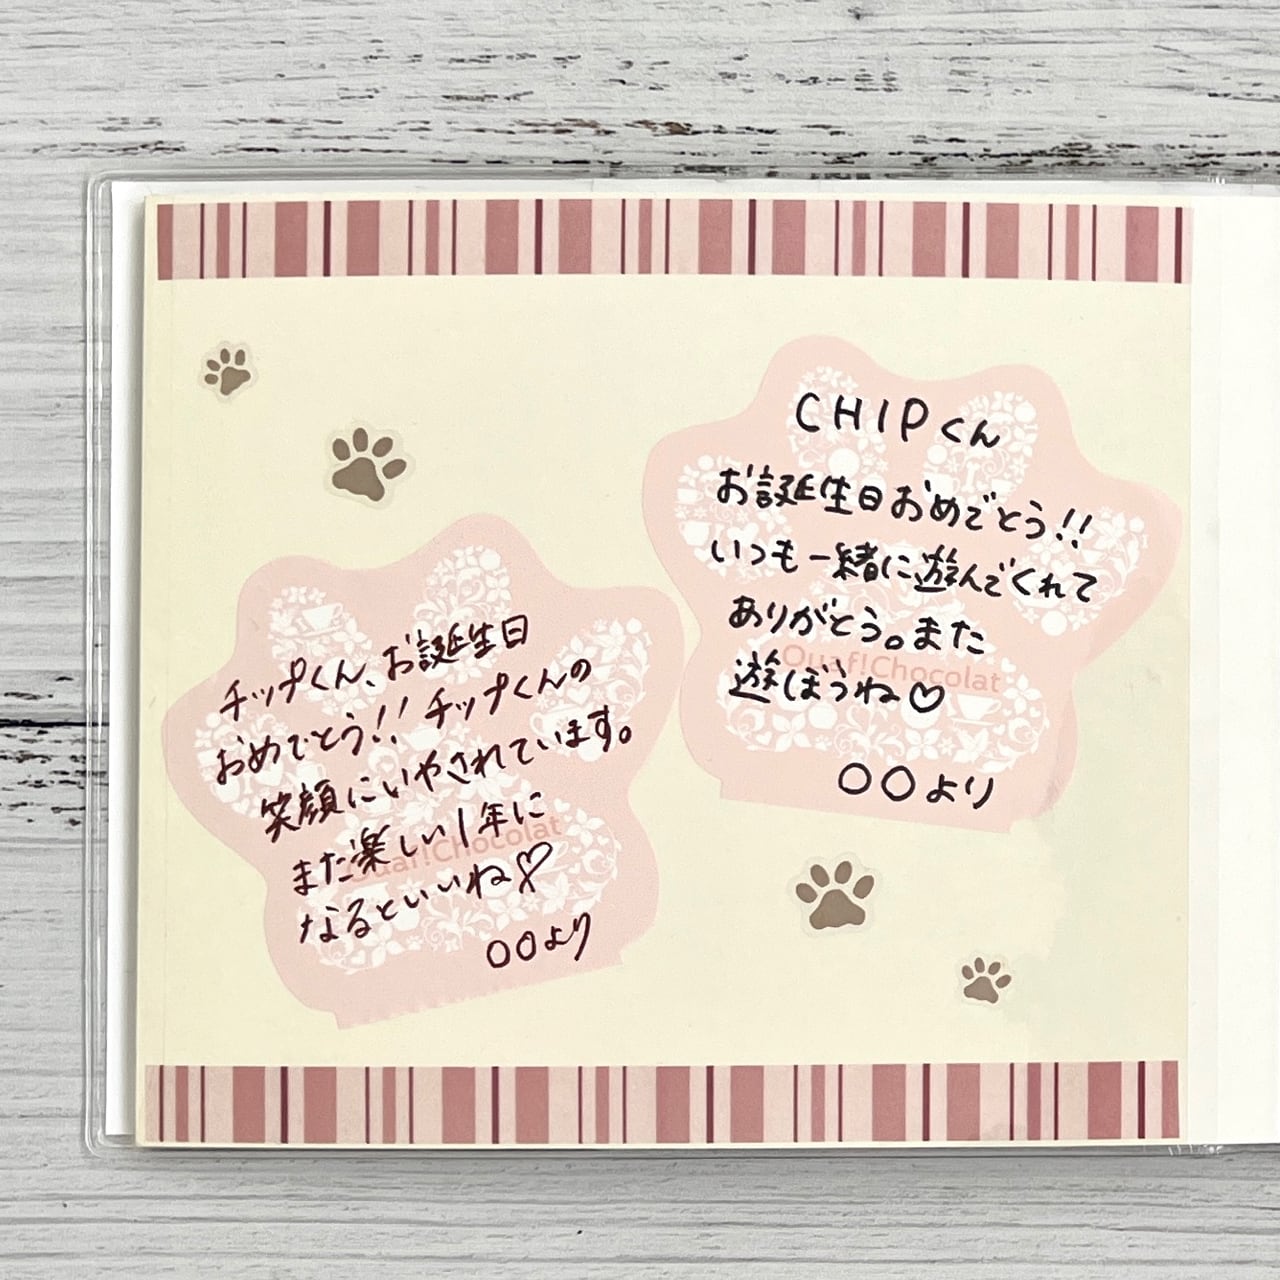 チップくん、お誕生日
おめでとう!! チップくんの
笑顔にいやされています。
また楽しい1年に
なるといいね♡
〇〇より
Ouaf!Chocolat
CHIPくん
お誕生日おめでとう!!
いつも一緒に遊んでくれて
ありがとう。また
遊ぼうね♡
〇〇より
Ouaf!Chocolat